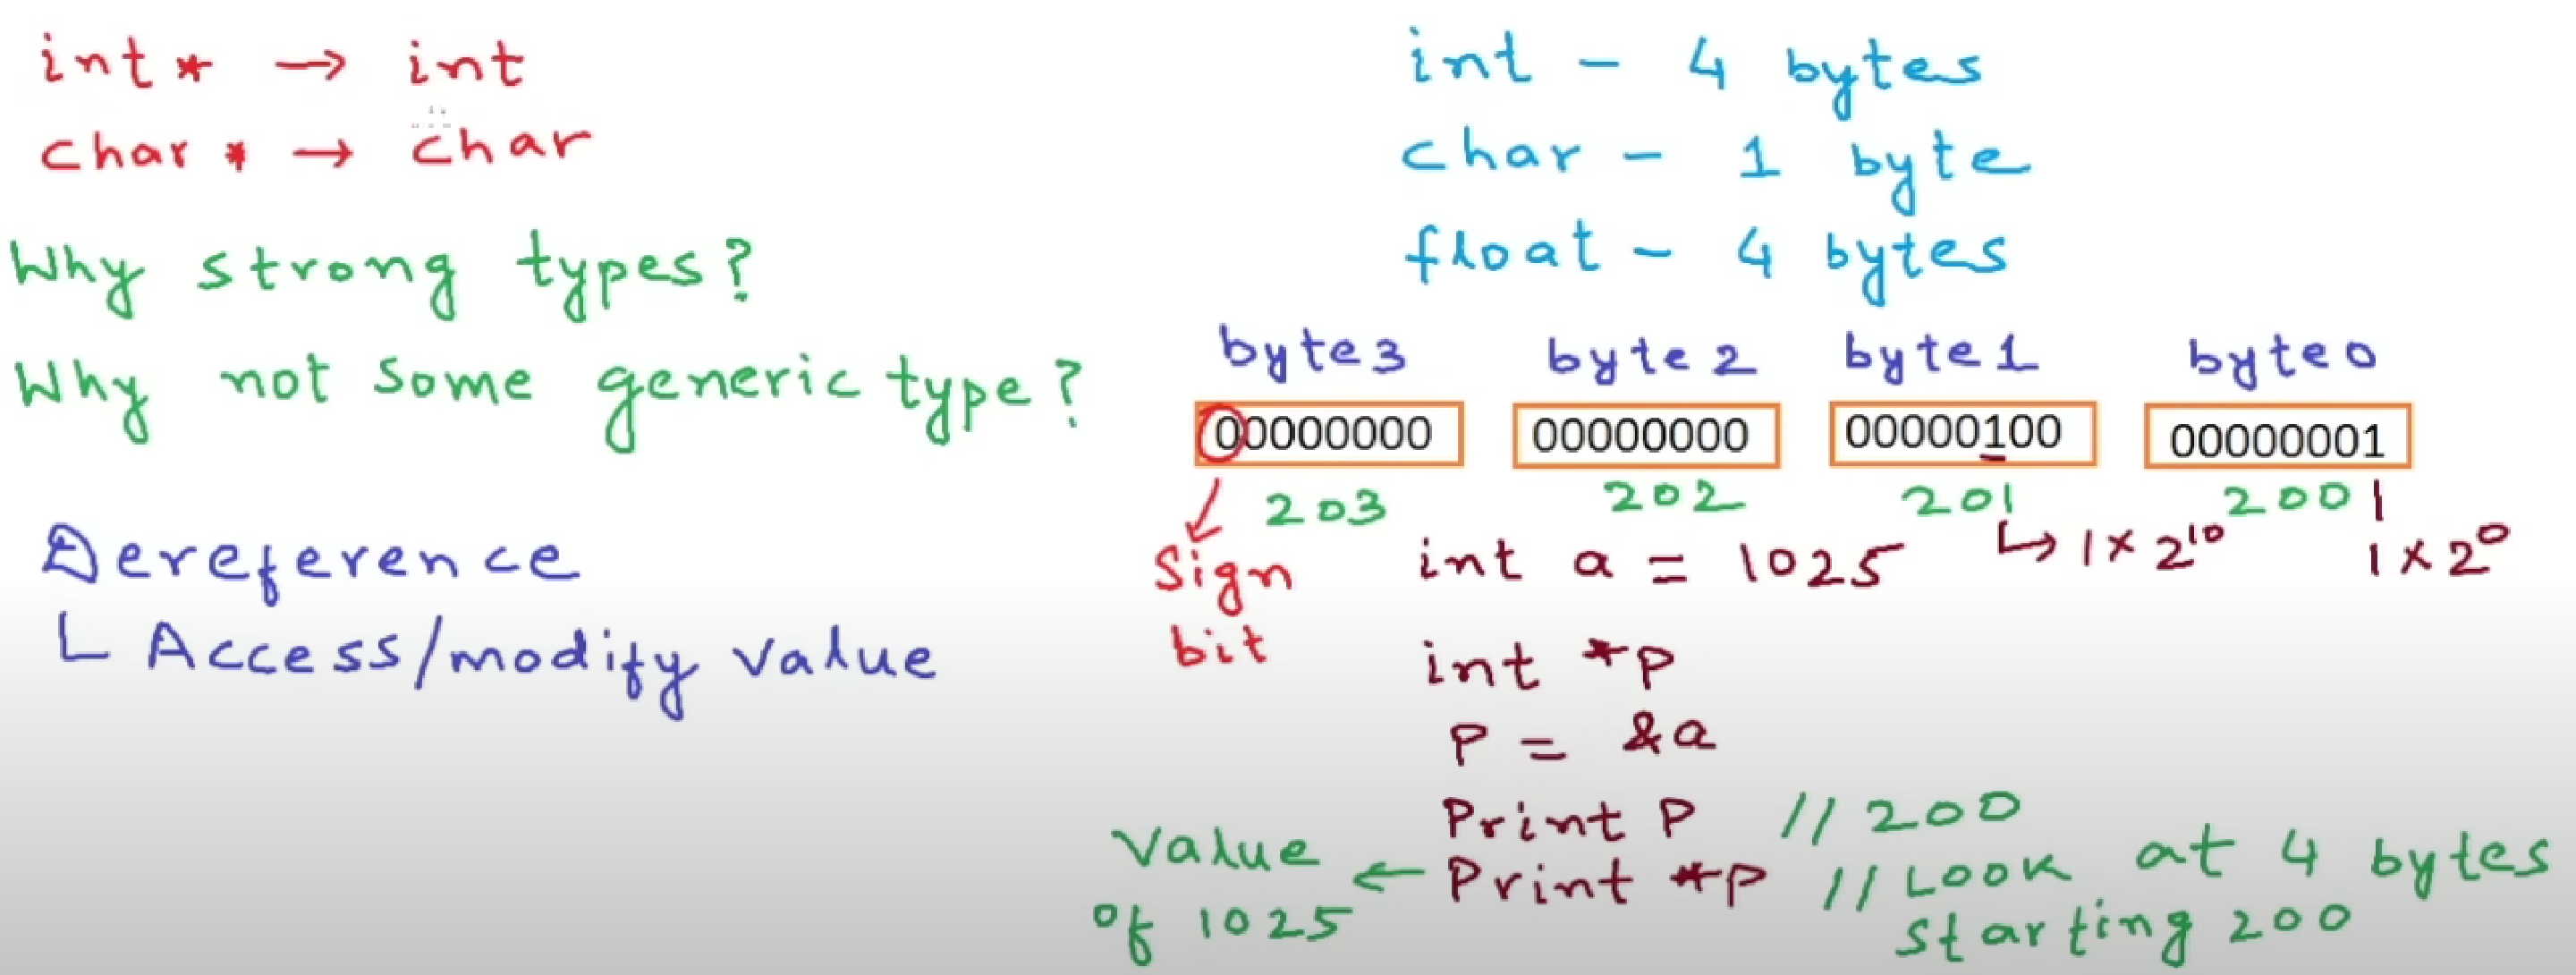 int * → int
char * → char
Why strong types?
Why not some generic type?
Dereference
└ Access/modify value
int - 4 bytes
char - 1 byte
float - 4 bytes
byte3 byte2 byte1 byte0
00000000 00000000 00000100 00000001
203 202 201 200
Sign
bit
↳ 1 × 2¹⁰
1 × 2⁰
int a = 1025
int *p
P = &a
Print P // 200
Print *p // Look at 4 bytes
starting 200
← Value
of 1025